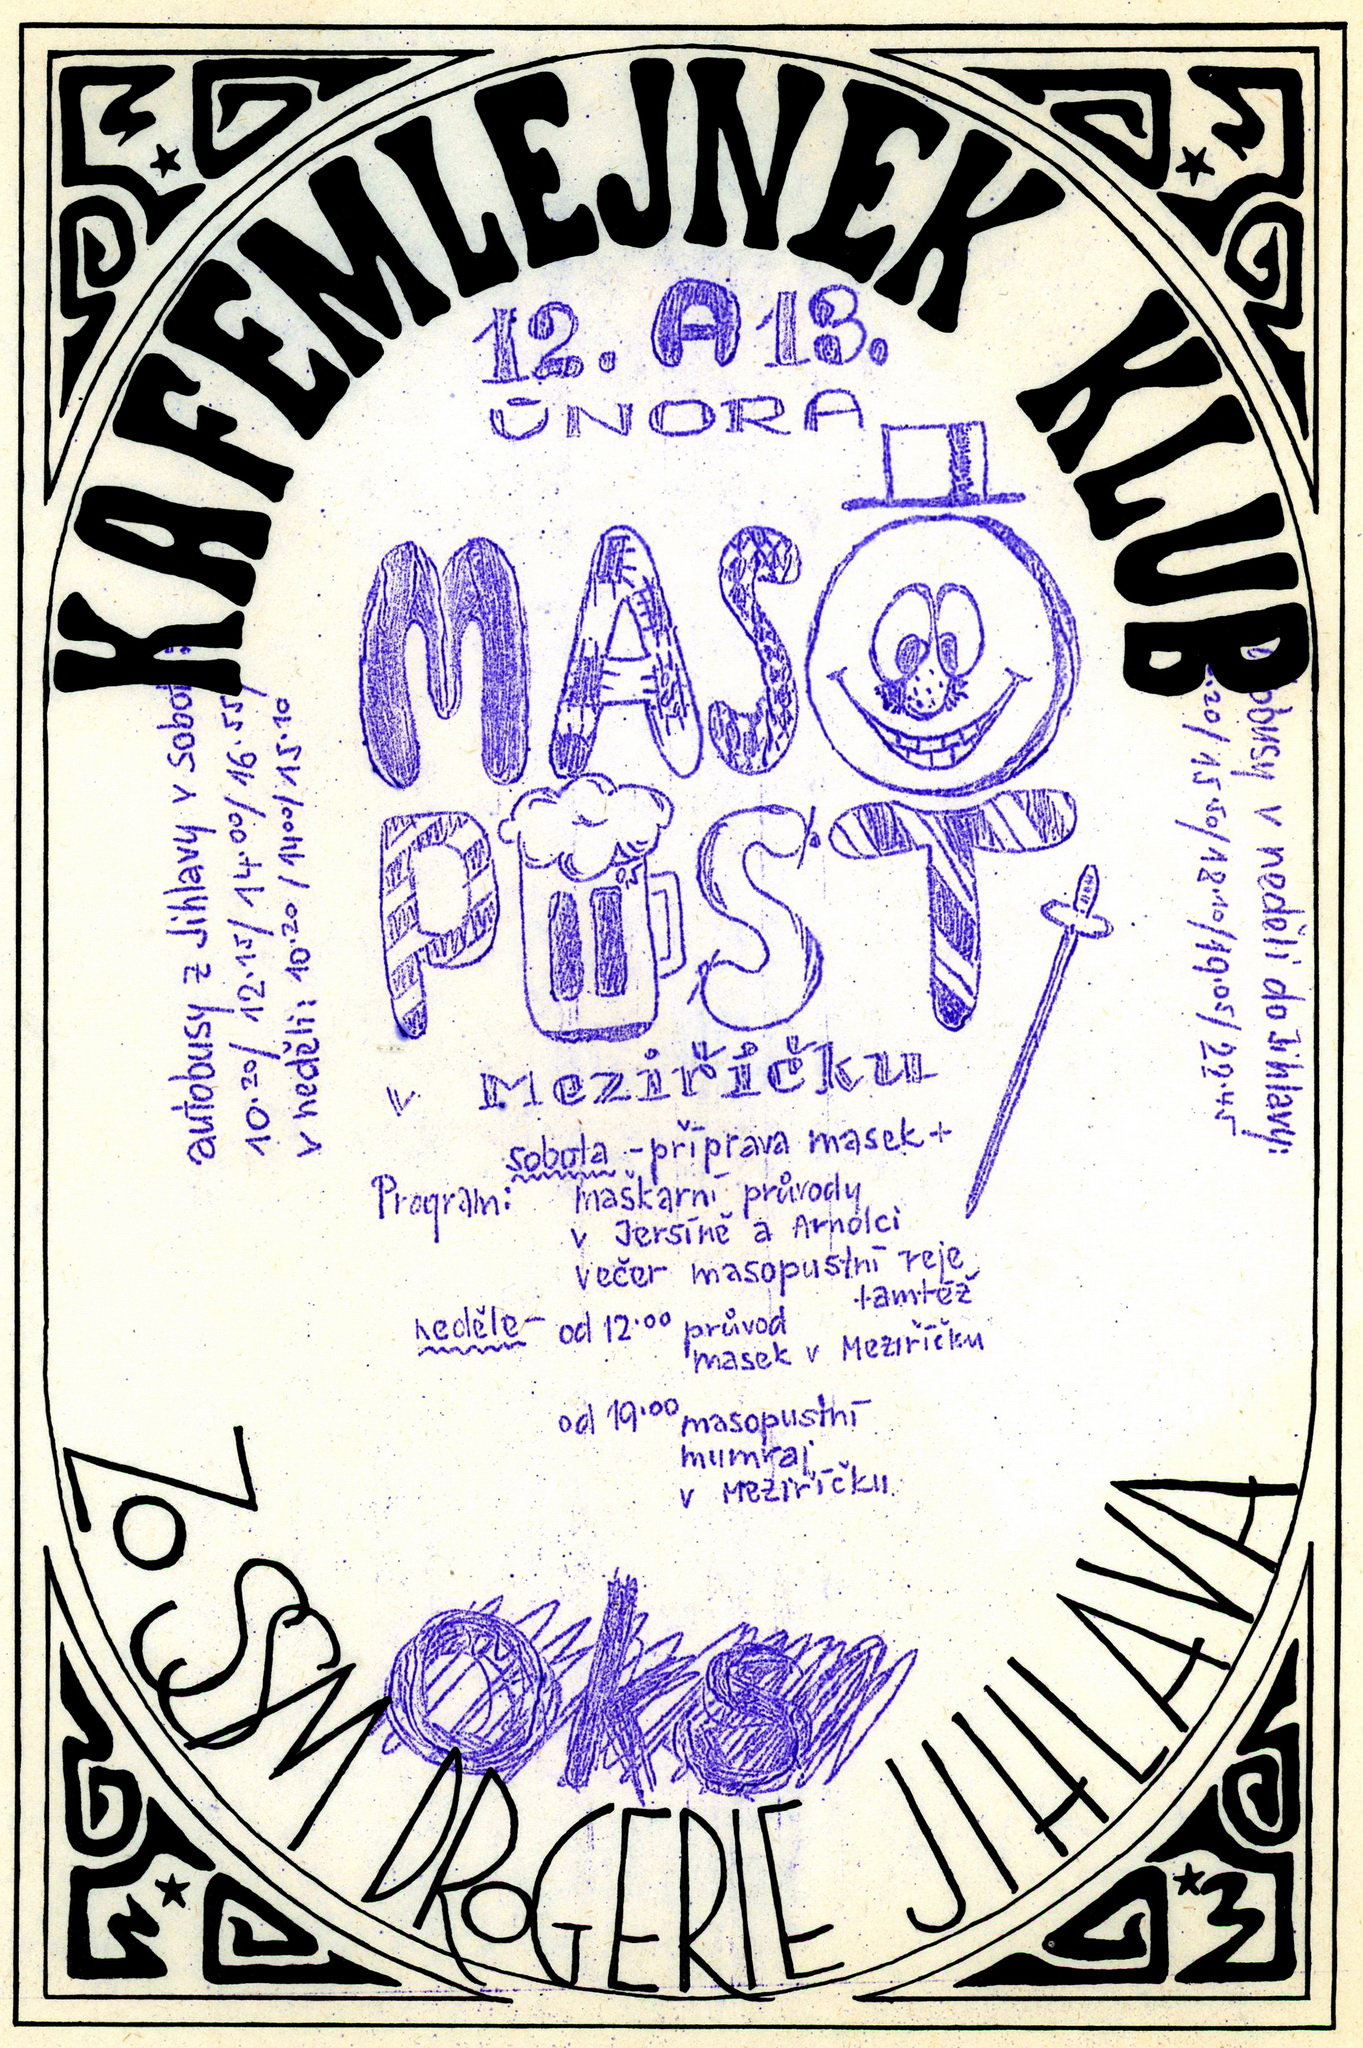 KAFEMLEJNEK KLUB
12. A 13.
ÚNORA
MASO
PUST
v Meziříčku
sobota - příprava masek +
Program: maškarní průvody
v Jersíně a Arnolci
večer masopustní reje
tamtéž
neděle - od 12.00 průvod
masek v Meziříčku
od 19.00 masopustní
mumraj
v Meziříčku
autobusy z Jihlavy v sobotu:
10.20/ 12.15/ 14.00/ 16.55/
v neděli: 10.20 / 1400/ 15.10
v neděli do Jihlavy:
.20/ 15.50/ 18.10/ 19.05/ 22.45
OKS
ZO SSM DROGERIE JIHLAVA